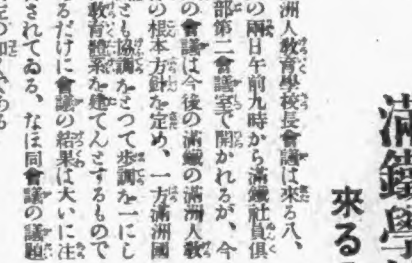 滿鐵學
來る
洲人敎育學校長會議は來る八、
の兩日午前九時から滿鐵社員俱
部第二會議室で開かれるが、今
の會議は今後の滿鐵の滿洲人敎
の根本方針を定め、一方滿洲國
とも協調をとつて步調を一にし
敎育體系を建てんとするもので
るだけに會議の結果は大いに注
されてゐる、なほ同會議の議題